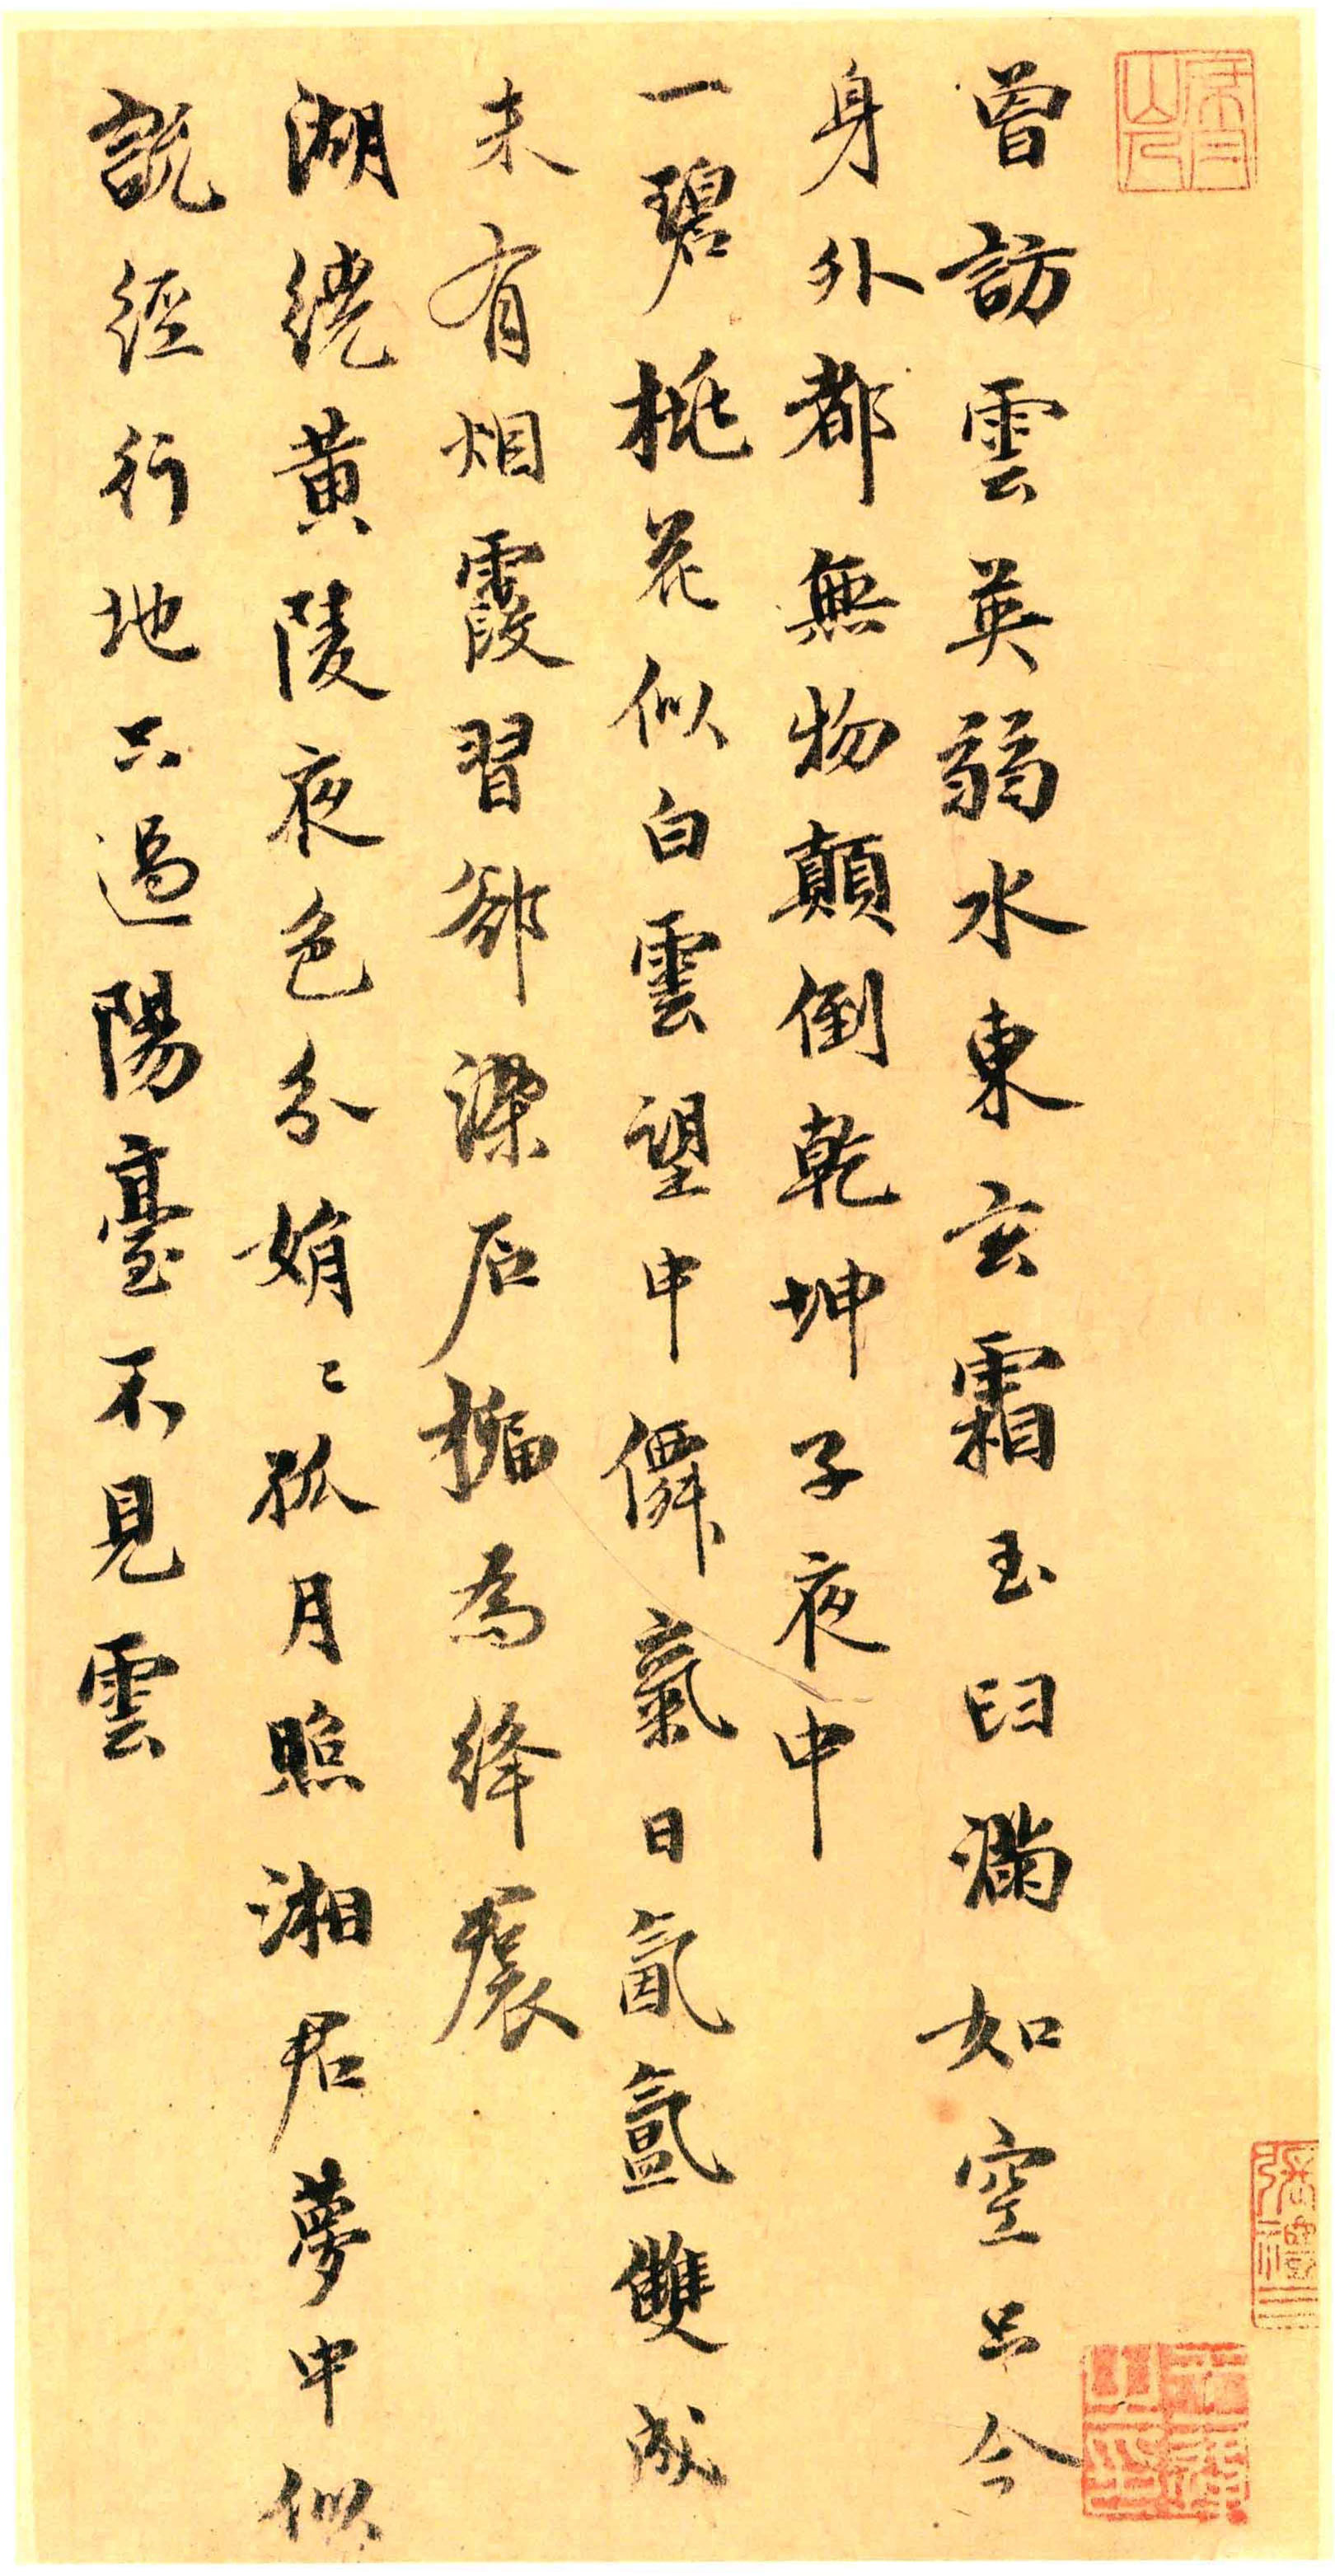 曾訪雲英弱水東玄霜玉臼滿如空只今
身外都無物顛倒乾坤子夜中
一碧桃花似白雲望中僊氣日氤氳雙成
未有烟霞習郤染石榴為絳裠
湖繞黄陵夜色分娟〻孤月照湘君夢中似
說經行地只過陽臺不見雲